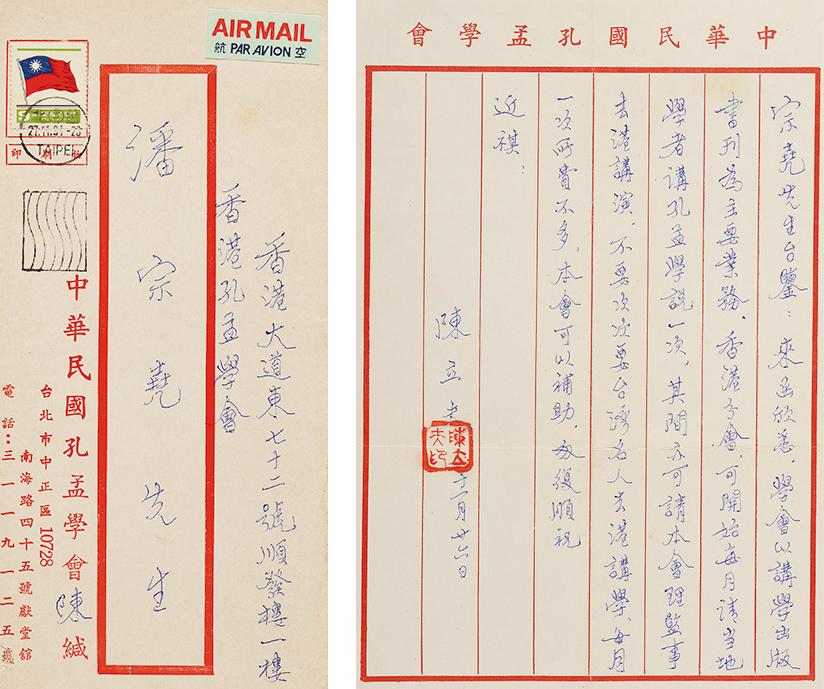 AIR MAIL
航 PAR AVION 空
27.11.81-20
TAIPEI
香港大道東七十二號順發樓一樓
香港孔孟學會
潘宗堯先生
中華民國孔孟學會陳緘
台北市中正區10728
南海路四十五號獻堂館
電話：三一一九一二五
中華民國孔孟學會
宗堯先生台鑒：來函欣悉，學會以講學出版
書刊為主要業務，香港分會，可開始每月請當地
學者講孔孟學說一次，其間亦可請本會理監事
去港講演，不要次次要台灣名人去港講學，每月
一次所費不多，本會可以補助，敬復順祝
近祺：
陳立夫
十一月廿六日